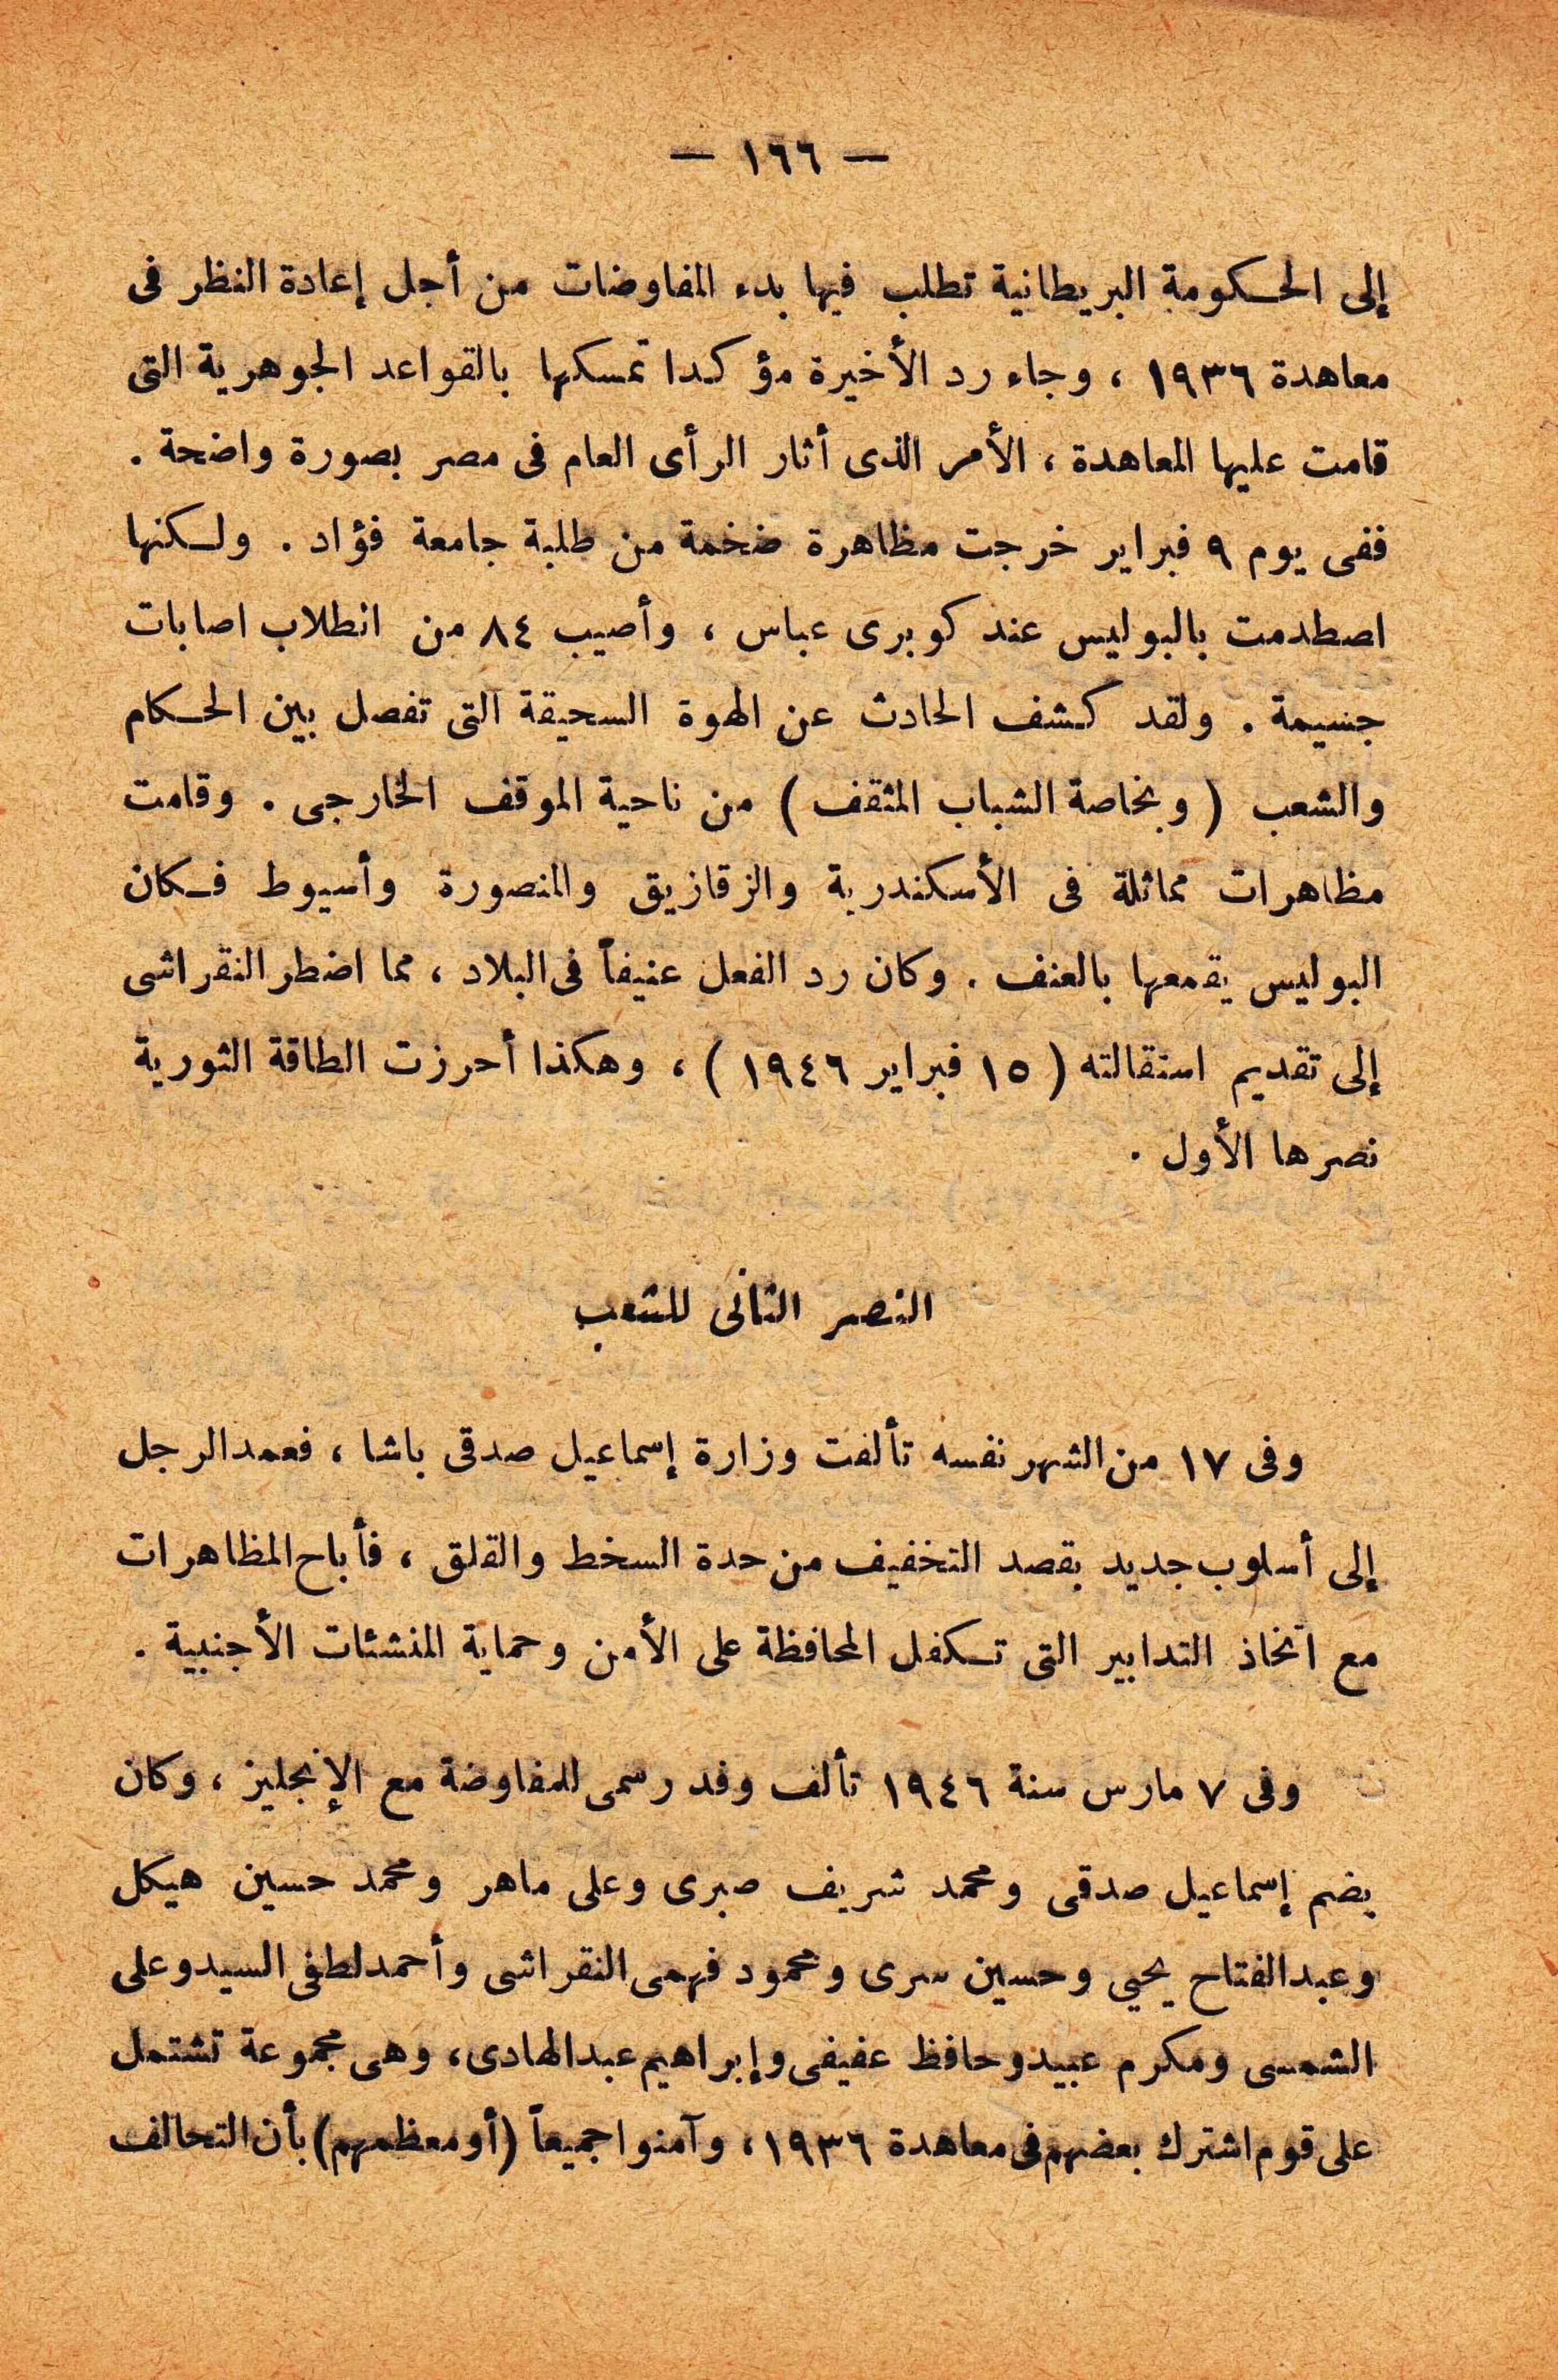 — ١٦٦ —
إلى الحكومة البريطانية تطلب فيها بدء المفاوضات من أجل إعادة النظر فى
معاهدة ١٩٣٦ ، وجاء رد الأخيرة مؤكدا تمسكها بالقواعد الجوهرية التى
قامت عليها المعاهدة ، الأمر الذى أثار الرأى العام فى مصر بصورة واضحة .
ففى يوم ٩ فبراير خرجت مظاهرة ضخمة من طلبة جامعة فؤاد . ولكنها
اصطدمت بالبوليس عند كوبرى عباس ، وأصيب ٨٤ من انطلاب اصابات
جسيمة . ولقد كشف الحادث عن الهوة السحيقة التى تفصل بين الحكام
والشعب ( وبخاصة الشباب المثقف ) من ناحية الموقف الخارجى . وقامت
مظاهرات مماثلة فى الأسكندرية والزقازيق والمنصورة وأسيوط فكان
البوليس يقمعها بالعنف . وكان رد الفعل عنيفاً فى البلاد ، مما اضطر النقراشى
إلى تقديم استقالته ( ١٥ فبراير ١٩٤٦ ) ، وهكذا أحرزت الطاقة الثورية
نصرها الأول .
النصر الثانى للشعب
وفى ١٧ من الشهر نفسه تألفت وزارة إسماعيل صدقى باشا ، فعمد الرجل
إلى أسلوب جديد بقصد التخفيف من حدة السخط والقلق ، فأباح المظاهرات
مع اتخاذ التدابير التى تكفل المحافظة على الأمن وحماية المنشئات الأجنبية .
وفى ٧ مارس سنة ١٩٤٦ تألف وفد رسمى للمفاوضة مع الإنجليز ، وكان
يضم إسماعيل صدقى ومحمد شريف صبرى وعلى ماهر ومحمد حسين هيكل
وعبد الفتاح يحيي وحسين سرى ومحمود فهمى النقراشى وأحمد لطفى السيد وعلى
الشمسى ومكرم عبيد وحافظ عفيفى وإبراهيم عبد الهادى، وهى مجموعة تشتمل
على قوم اشترك بعضهم فى معاهدة ١٩٣٦، وآمنوا جميعاً (أو معظمهم) بأن التحالف